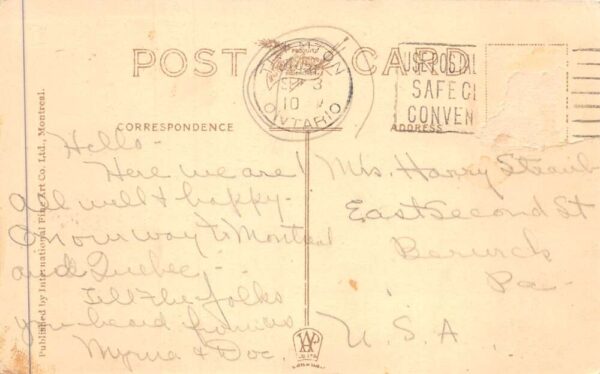 POST CARD
ONTARIO
SEP 3
10
USE POSTAL
SAFE
CONVEN
CORRESPONDENCE
ADDRESS
Published by International Fine Art Co. Ltd., Montreal.
Hello -
Here we are!
all well & happy.
On our way to Montreal
and Quebec, -
Tell the folks
you heard from us
Myrna & Doc.
Mrs. Harry Straub
East Second St
Berwick
Pa -
U. S. A.